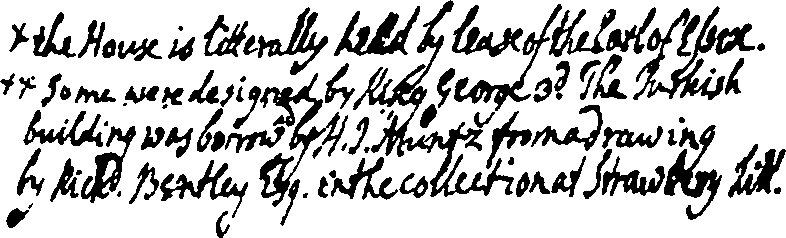 × the House is litterally held by lease of the Earl of Essex.
×× Some were designed by King George 3d. The Turkish
building was borrow'd by H. J. Muntz from a drawing
by Richd. Bentley Esq. in the collection at Strawberry Hill.